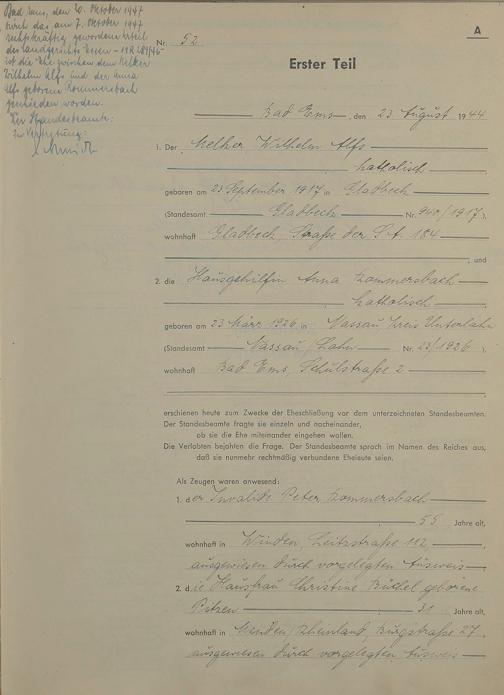 Bad Ems, den 20. Oktober 1947
durch das am 7. Oktober 1947
rechtskräftig gewordene Urteil
des Landgerichts Essen
ist die Ehe zwischen dem Melker
Wilhelm Alfs und der Anna
Alfs geborene Kommersbach
geschieden worden.
Der Standesbeamte:
In Vertretung:
A
Nr. 52
Erster Teil
Bad Ems, den 23. August 1944
1. Der Melker Wilhelm Alfs
katholisch
geboren am 23. September 1917 in Gladbeck
(Standesamt Gladbeck Nr. 940/1917),
wohnhaft Gladbeck, Straße der S.A. 184
, und
2. die Hausgehilfin Anna Kommersbach
katholisch
geboren am 23. März 1926 in Nassau Kreis Unterlahn
(Standesamt Nassau/Lahn Nr. 23/1926)
wohnhaft Bad Ems, Schulstraße 2
erschienen heute zum Zwecke der Eheschließung vor dem unterzeichneten Standesbeamten.
Der Standesbeamte fragte sie einzeln und nacheinander,
ob sie die Ehe miteinander eingehen wollen.
Die Verlobten bejahten die Frage. Der Standesbeamte sprach im Namen des Reiches aus,
daß sie nunmehr rechtmäßig verbundene Eheleute seien.
Als Zeugen waren anwesend:
1. der Invalide Peter Kommersbach
55 Jahre alt,
wohnhaft in Winden, 112,
ausgewiesen durch vorgelegten Ausweis
2. die Hausfrau Christine Büchel geborene
Pitzen 31 Jahre alt,
wohnhaft in Menden/Rheinland, Burgstraße 27
ausgewiesen durch vorgelegten Ausweis